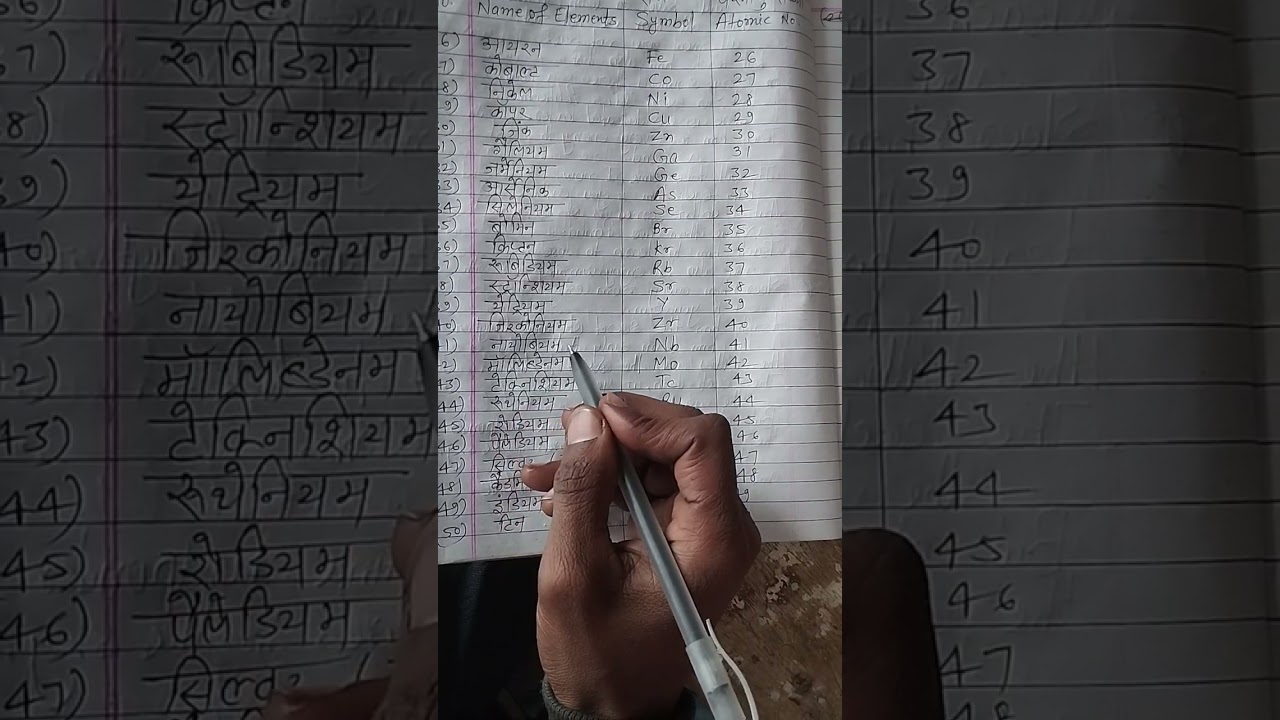 Name of Elements Symbol Atomic No.
6) आयरन Fe 26
7) कोबाल्ट Co 27
8) निकेल Ni 28
9) कॉपर Cu 29
30) जिंक Zn 30
31) गैलियम Ga 31
32) जर्मेनियम Ge 32
33) आर्सेनिक As 33
34) सिलेनियम Se 34
35) ब्रोमिन Br 35
36) क्रिप्टन Kr 36
37) रूबिडियम Rb 37
38) स्ट्रॉन्शियम Sr 38
39) येट्रियम Y 39
40) जिरकोनियम Zr 40
41) नायोबियम Nb 41
42) मॉलिब्डेनम Mo 42
43) टेक्निशियम Tc 43
44) रूथेनियम 44
45) रोडियम 45
46) पैलेडियम 46
47) सिल्वर 47
48) 48
49) इंडियम 9
50) टिन